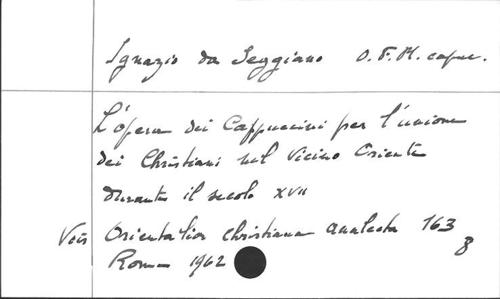 Ignazio da Seggiano O.F.M. capuc.
L'opera dei Cappuccini per l'unione
dei Christiani nel Vicino Oriente
durante il secolo XVII
Voir Orientalia Christiana analecta 163
8
Roma 1962